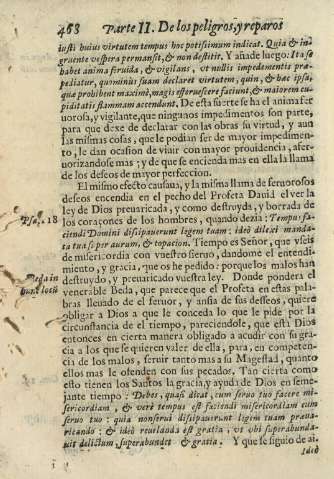 468 Parte II. De los peligros, y reparos
iusti huius virtutem tempus hoc potissimum indicat. Quia & in-
gruente vespera permansit, & non destitit. Y añade luego: Ita se
habet anima feruida, & vigilans, vt nullis impedimentis præ-
pediatur, quominus suam declaret virtutem, quin, & hæc ipsa,
quæ prohibent maximè, magis efferuescere faciunt, & maiorem cu-
piditatis flammam accendunt. De esta suerte se ha el anima fer
uorosa, y vigilante, que ningunos impedimentos son parte,
para que dexe de declarar con las obras su virtud, y aun
las mismas cosas, que le podian ser de mayor impedimen-
to, le dan ocasion de viuir con mayor prouidencia, afer-
uorizandose mas; y de que se encienda mas en ella la llama
de los deseos de mayor perfeccion.
El mismo efecto causaua, y la misma llama de feruorosos
deseos encendia en el pecho del Profeta Dauid el ver la
ley de Dios preuaricada, y como destruyda, y borrada de
Psal. 118 los coraçones de los hombres, quando dezia: Tempus fa-
ciendi Domini dissipauerunt legem tuam: ideò dilexi manda-
ta tua super aurum, & topacion. Tiempo es Señor, que vseis
de misericordia con vuestro sieruo, dandome el entendi-
miento, y gracia, que os he pedido: porque los malos han
Beda in destruydo, y preuaricado vuestra ley. Donde pondera el
hunc locũ venerable Beda, que parece que el Profeta en estas pala-
bras lleuado de el feruor, y ansia de sus desseos, quiere
obligar a Dios a que le conceda lo que le pide por la
circunstancia de el tiempo, pareciendole, que està Dios
entonces en cierta manera obligado a acudir con su gra-
cia a los que se quieren valer de ella, para, en competencia
de los malos, seruir tanto mas a su Magestad, quanto
ellos mas le ofenden con sus pecados. Tan cierta como
esto tienen los Santos la gracia, y ayuda de Dios en seme-
jante tiempo: Debes, quasi dicat, cum seruo tuo facere mi-
sericordiam, & verè tempus est faciendi misericordiam cum
seruo tuo: quia non serui dissipauerunt legem tuam præua-
ricando: & ideò reuelanda est gratia, vt vbi superabunda-
uit delictum, superabundet & gratia. Y que se siguio de ai.
Ideò